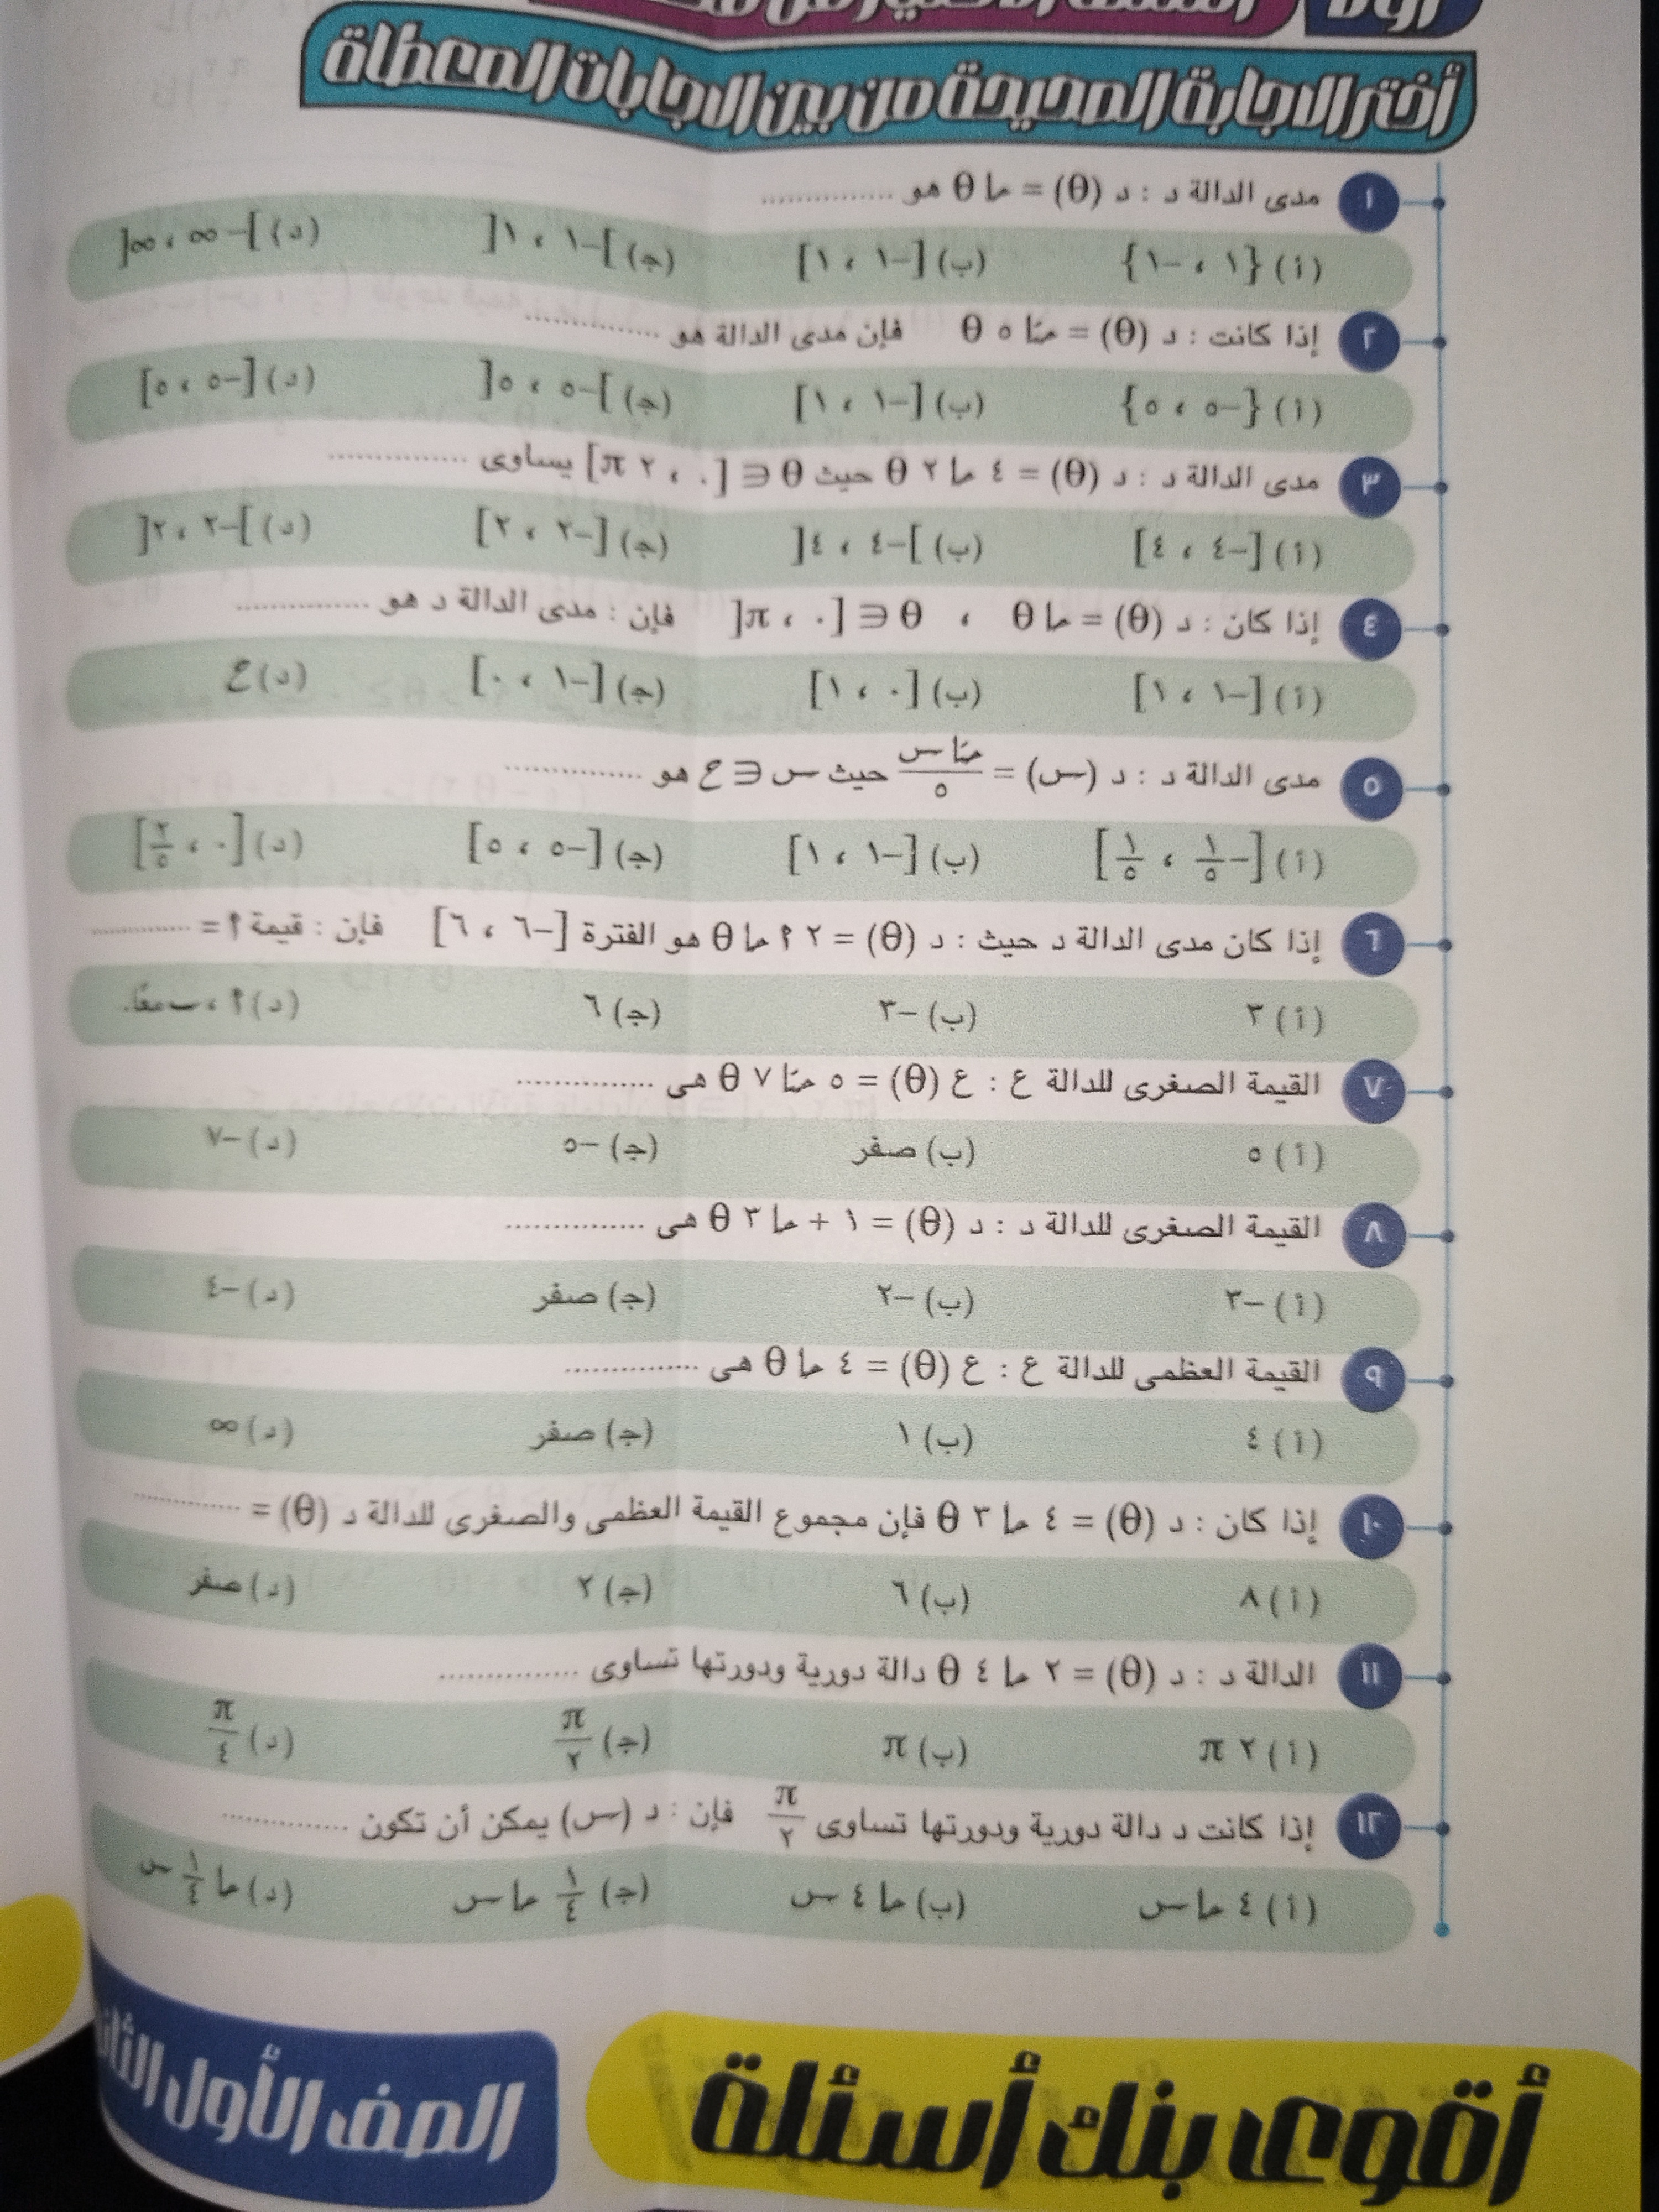 أولًا
أختر الاجابة الصحيحة من بين الاجابات المعطاة
١ مدى الدالة د : د (θ) = حا θ هو ...............
(أ) {١ ، -١} (ب) [-١ ، ١] (ج) ]-١ ، ١[ (د) ]-∞ ، ∞[
٢ إذا كانت : د (θ) = حتا ٥ θ فإن مدى الدالة هو ...............
(أ) {-٥ ، ٥} (ب) [-١ ، ١] (ج) ]-٥ ، ٥[ (د) [-٥ ، ٥]
٣ مدى الدالة د : د (θ) = ٤ حا ٢ θ حيث θ ∈ [٠ ، ٢ π] يساوى ...............
(أ) [-٤ ، ٤] (ب) ]-٤ ، ٤[ (ج) [-٢ ، ٢] (د) ]-٢ ، ٢[
٤ إذا كان : د (θ) = حا θ ، θ ∈ [٠ ، π[ فإن : مدى الدالة د هو ...............
(أ) [-١ ، ١] (ب) [٠ ، ١] (ج) [-١ ، ٠] (د) ح
٥ مدى الدالة د : د (س) = حتا س/٥ حيث س ∈ ح هو ...............
(أ) [-١/٥ ، ١/٥] (ب) [-١ ، ١] (ج) [-٥ ، ٥] (د) [٠ ، ٢/٥]
٦ إذا كان مدى الدالة د حيث : د (θ) = ٢ ٢ حا θ هو الفترة [-٦ ، ٦] فإن : قيمة أ = ...............
(أ) ٣ (ب) -٣ (ج) ٦ (د) أ ، ب معًا.
٧ القيمة الصغرى للدالة ع : ع (θ) = ٥ حتا ٧ θ هى ...............
(أ) ٥ (ب) صفر (ج) -٥ (د) -٧
٨ القيمة الصغرى للدالة د : د (θ) = ١ + حا ٣ θ هى ...............
(أ) -٣ (ب) -٢ (ج) صفر (د) -٤
٩ القيمة العظمى للدالة ع : ع (θ) = ٤ حا θ هى ...............
(أ) ٤ (ب) ١ (ج) صفر (د) ∞
١٠ إذا كان : د (θ) = ٤ حا ٣ θ فإن مجموع القيمة العظمى والصغرى للدالة د (θ) = ...............
(أ) ٨ (ب) ٦ (ج) ٢ (د) صفر
١١ الدالة د : د (θ) = ٢ حا ٤ θ دالة دورية ودورتها تساوى ...............
(أ) ٢ π (ب) π (ج) π/٢ (د) π/٤
١٢ إذا كانت د دالة دورية ودورتها تساوى π/٢ فإن : د (س) يمكن أن تكون ...............
(أ) ٤ حا س (ب) حا ٤ س (ج) ١/٤ حا س (د) حا ١/٤ س
أقوى بنك أسئلة
الصف الأول